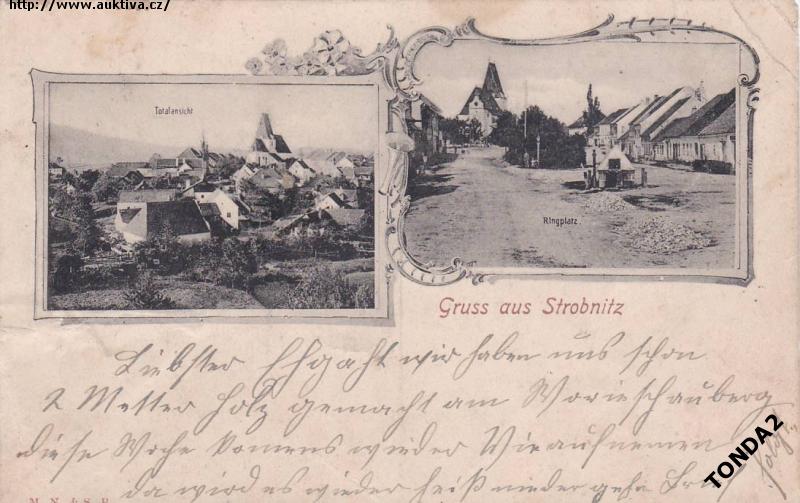 http://www.auktiva.cz/
Totalansicht
Ringplatz.
Gruss aus Strobnitz
Liebster wir haben uns schon
2 Metter Holz gemacht am
diese Woche komens wieder
da wird es wieder heiß nieder gehn
TONDA2